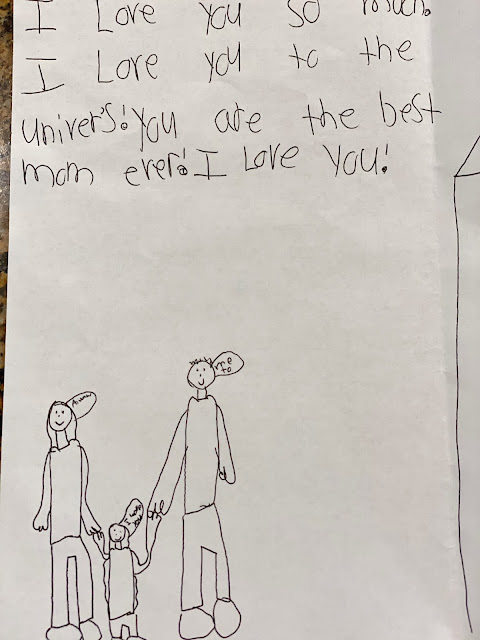 I Love you so much.
I Love you to the
univers! you are the best
mom ever! I Love You!
me
to